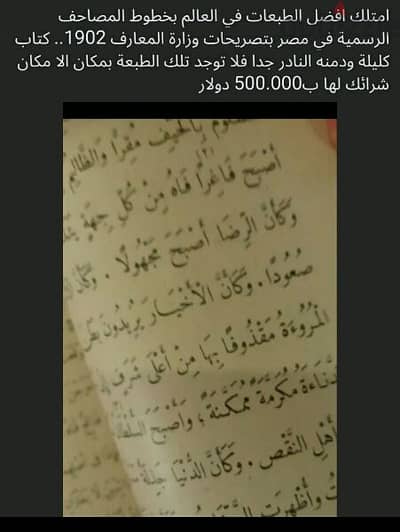 امتلك افضل الطبعات في العالم بخطوط المصاحف
الرسمية في مصر بتصريحات وزارة المعارف 1902.. كتاب
كليلة ودمنه النادر جدا فلا توجد تلك الطبعة بمكان الا مكان
شرائك لها ب500.000 دولار
بِالْحَيْفِ مُقِرًّا وَالظَّالِمُ
أَصْبَحَ فَاغِرًا فَاهُ مِنْ كُلِّ جِهَةٍ
وَكَأَنَّ الرِّضَا أَصْبَحَ مَجْهُولًا .
صُعُودًا . وَكَأَنَّ الْأَخْيَارَ يُرِيدُونَ
الْمُرُوءَةُ مَقْذُوفًا بِهَا مِنْ أَعْلَى شَرَفٍ
مُكَرَّمَةً مُمَكَّنَةً ؛ وَأَصْبَحَ
أَهْلِ النَّقْصِ . وَكَأَنَّ الدُّنْيَا جَذِلَةً
وَأَظْهَرْتُ